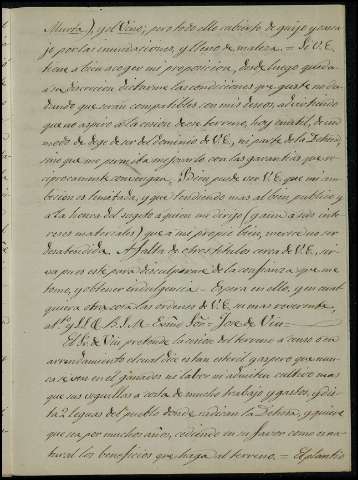 Muerta), y el Vino; pero todo ello cubierto de guijo y
jo por las inundaciones, y lleno de maleza. = Si V.E.
tiene a bien acoger mi proposicion, desde luego queda
a su discrecion dictarme las condiciones que guste no du
dando que serán compatibles con mis deseos, advirtiendo
que no aspiro a la cesion de ese terreno, hoy inutil, de un
modo de dege de ser del dominio de V.E., ni parte de la Dehesa,
sino que me permita mejorarlo con las garantias que re
ciprocamente convengan. Bien puede ver V.E. que mi am
bicion es limitada, y que tendiendo mas al bien publico y
a la honra del sugeto a quien me dirijo (y aun a sus inte
reses materiales) que a mi propio bien, merece no ser
desatendida. A falta de otros titulos cerca de V.E., sir
va pues este para disculparme de la confianza que me
tomo, y obtener indulgencia. Espera en ello, y en cual
quiera otra cosa las ordenes de V.E. su mas reverente,
at.to y S.S. Q. B. S. M. Exmo Sor. = Jose de Viu =
El Sr. de Viu pretende la cesion del terreno a censo o en
arrendamiento el cual dice estar esteril y aspero que nun
ca se ven en el ganados ni labor ni admitira cultivo mas
que sus orgullos a costa de mucho trabajo y gastos, y dis
ta 2 leguas del pueblo donde radican la Dehesa, y quiere
que sea por muchos años, cediendo en su favor como es na
tural los beneficios que haga al terreno. = El plantio